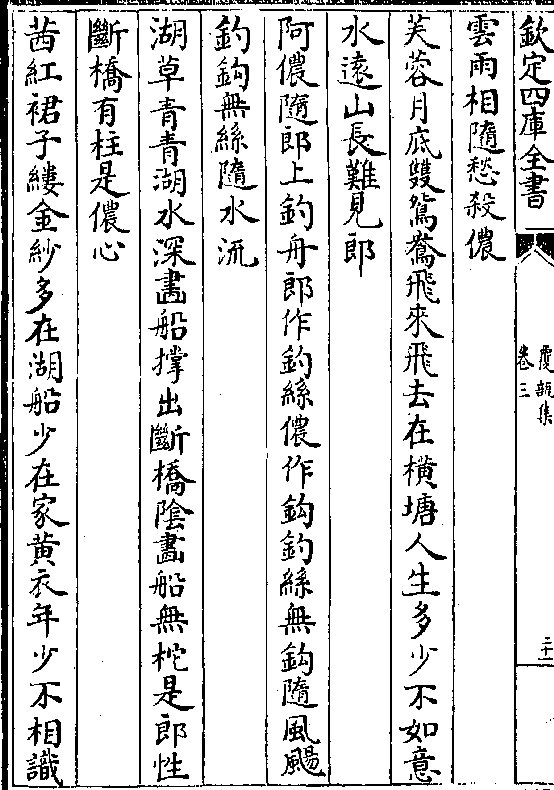 欽定四庫全書
覆瓿集
卷三
二十一
雲雨相隨愁殺儂
芙蓉月底雙鴛鴦飛來飛去在橫塘人生多少不如意
水遠山長難見郎
阿儂隨郎上釣舟郎作釣絲儂作鈎釣絲無鈎隨風颺
釣鈎無絲隨水流
湖草青青湖水深畵船撑出斷橋陰畵船無柁是郎性
斷橋有柱是儂心
茜紅裙子縷金紗多在湖船少在家黄衣年少不相識